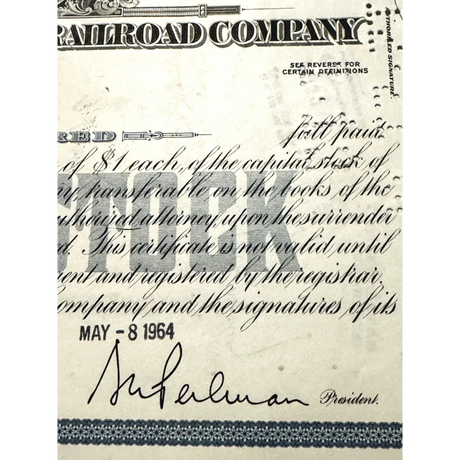 RAILROAD COMPANY
AUTHORIZED SIGNATURE
SEE REVERSE FOR
CERTAIN DEFINITIONS
RED
full paid
of $1 each, of the capital stock of
transferable on the books of the
authorized attorney upon the surrender
d. This certificate is not valid until
ent and registered by the registrar.
ompany and the signatures of its
STOCK
MAY - 8 1964
Perlman
President.